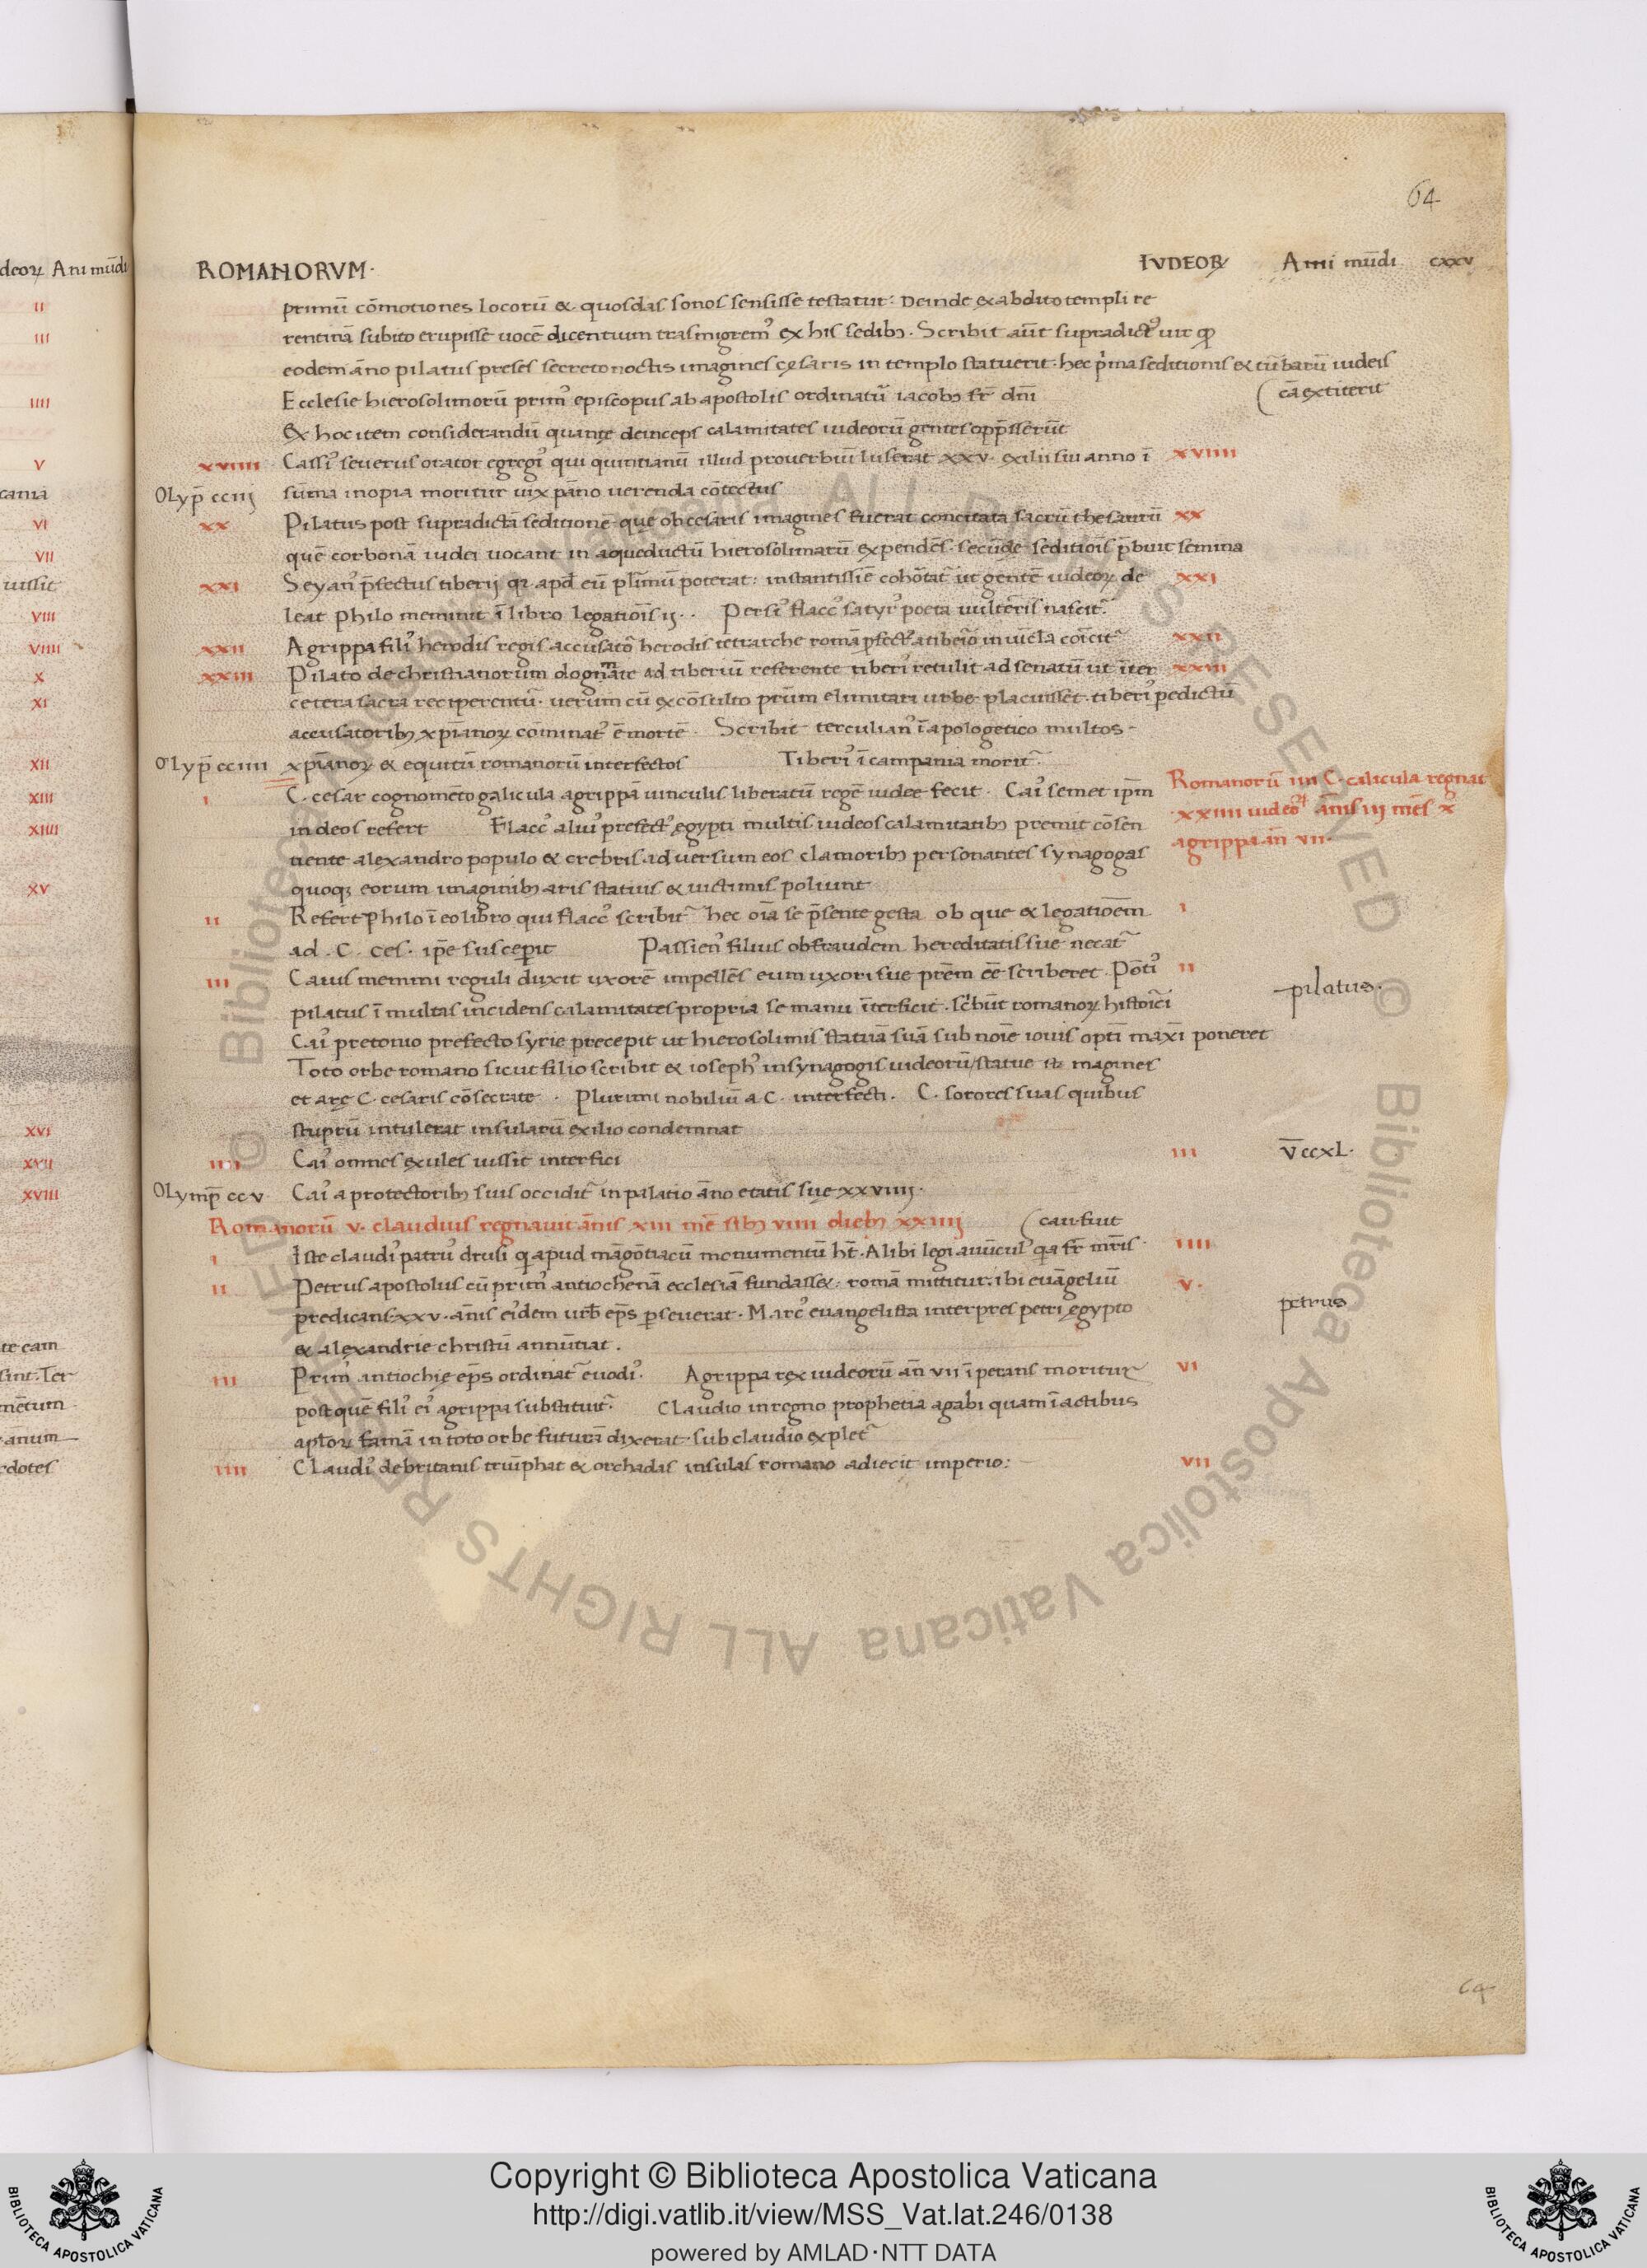 64
deoꝝ Ani mūdi
ROMANORVM·
IVDEOꝜ Anni mūdi cxxv
primū cōmotiones locorū & quosdas sonos sensisse testatur: Deinde ex abdito templi re
rentinā subito erupisse uocē dicentium trasmigremꝰ ex his sedibꝫ. Scribit aūt supradictꝰ uir ꝙ
eodem āno pilatus preses secreto noctis imagines cęsaris in templo statuerit. hec p̄ma seditionis ex tūbarū iudeis
cā extiterit
Ecclesie hierosolimorū primꝰ episcopus ab apostolis ordinatū iacobꝫ fr̄ dn̄i
Ex hoc item considerandū quantę deinceps calamitates iudeorū gentes opp̄sserūt
xviiii Cassiꝰ seuerus orator egregiꝰ qui quintianū illud prouerbiū luserat xxv. exilii sui anno ī xviiii
Olyp̄ cciij sūma inopia moritur uix pāno uerenda cōtectus
xx Pilatus post supradictā seditionē que ob cesaris imagines fuerat concitata sacrū thesaurū xx
quē corbonā iudei uocant in aqueductū hierosolimarū expendēs. secūde seditiōis p̄buit semina
xxi Seyanꝰ p̄fectus tiberij qr apd̄ eū pl̄imū poterat: instantissīe cohōtat̄ ut gentē iudeoꝝ de xxi
leat philo meminit ī libro legatiōis ij. . Persiꝰ flaccꝰ satyrꝰ poeta uulteris nascit̄.
xxii Agrippa filiꝰ herodis regis accusatō herodis tetrarche romā ꝓfectꝰ a tibeīo in uīcla coīcit̄ xxii
xxiii Pilato de christianorum dogmate ad tiberiū referente tiberiꝰ retulit ad senatū ut īter xxiii
cetera sacra reciperentū. uerum cū ex cōsulto prūm eliminari urbe placuisset. tiberiꝰ pedictū
accusatoribꝫ xp̄ianoꝝ cōminatꝰ ē mortē. Scribit terculianꝰ ī apologetico multos -
Olyp̄ cciiii xp̄ianoꝝ & equitū romanorū interfectos Tiberiꝰ ī campania morit̄.
i C. cesar cognomēto galicula agrippā uinculis liberatū regē iudee fecit. Caiꝰ semet ip̄m
Romanorū iiii C. calicula regnat
xxiiii iudeoꝝ ānis iij mēs x
agrippa an̄ vii.
in deos refert Flaccꝰ aluiꝰ prefectꝰ egypti multis iudeos calamitatibꝫ premit cōsen
tiente alexandro populo & crebris aduersum eos clamoribꝫ personantes synagogas
quoqꝫ eorum imaginibꝫ aris statuis & uictimis poliunt
ii Refert philo ī eo libro qui flaccꝰ scribit̄ hec oīa se p̄sente gesta ob que & legatioēm i
ad. C. ces. ip̄e suscepit Passienꝰ filius ob fraudem hereditatis sue necat̄
iii Caius memmi reguli duxit uxorē impellēs eum uxori sue prēm eē scriberet. Pōtiꝰ ii
pilatus.
pilatus ī multas incidens calamitates propria se manu īterficit. scb̄ūt romanoꝝ histoīci
Caiꝰ pretonio prefecto syrie precepit ut hierosolimis statuā suā sub noīe iouis optī maxī poneret
Toto orbe romano sicut filio scribit & iosephꝰ in synagogis iudeorū statue & magines
et are C. cesaris cōsecrate . Plurimi nobiliū a C. interfecti. C. sorores suas quibus
stuprū intulerat insularū exilio condemnat
iiii Caiꝰ omnes exules iussit interfici iii v̄ccxl.
Olymp̄ ccv Caiꝰ a protectoribꝫ suis occidit̄ in palatio āno etatis suę xxviiij.
Romanorū v. claudius regnauit ānis xiii mē sibꝫ viiii diebꝫ xxiiij
cai fuit
i Iste claudiꝰ patruꝰ drusi q̄ apud māgōtiacū monumentū ht̄. Alibi legi auūculꝰ qa fr̄ mr̄is. iiii
ii Petrus apostolus cū primꝰ antiochenā ecclesiā fundasset. romā mittitur. ibi euāgeliū v.
petrus
predicans xxv. ānis eiꝰdem urb̄ ep̄s ꝑseuerat. Marcꝰ euangelista interpres petri egypto
& alexandrie christū annūtiat.
iii Primꝰ antiochię ep̄s ordinat̄ euodiꝰ. Agrippa rex iudeorū an̄ vii īperans moritur vi
post quē filiꝰ eiꝰ agrippa substituit̄. Claudio in regno prophetia agabi quam ī actibus
aptōꝝ famā in toto orbe futurā dixerat sub claudio explet̄
iiii Claudiꝰ de britanis triūphat & orchadas insulas romano adiecit imperio: vii
ii
iii
iiii
v
cania
vi
vii
iussit
viii
viiii
x
xi
xii
xiii
xiiii
xv
xvi
xvii
xviii
te eam
sint. Ter
mētum
anum
rdotes
64
© Biblioteca Apostolica Vaticana ALL RIGHTS RESERVED
Copyright © Biblioteca Apostolica Vaticana
http://digi.vatlib.it/view/MSS_Vat.lat.246/0138
powered by AMLAD·NTT DATA
BIBLIOTECA APOSTOLICA VATICANA
BIBLIOTECA APOSTOLICA VATICANA